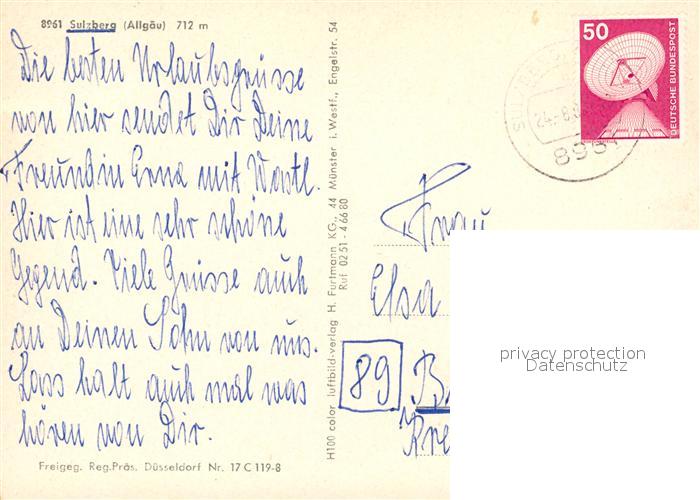 8961 Sulzberg (Allgäu) 712 m
Die besten Urlaubsgrüsse
von hier sendet Dir Deine
Freundin Erna mit Wastl.
Hier ist eine sehr schöne
Gegend. Viele Grüsse auch
an Deinen Sohn von uns.
Lass halt auch mal was
hören von Dir.
Freigeg. Reg.Präs. Düsseldorf Nr. 17 C 119-8
H100 color luftbild-verlag H. Furtmann KG., 44 Münster i. Westf., Engelstr. 54
Ruf 02 51 - 4 66 80
50
DEUTSCHE BUNDESPOST
24.-8.
896
Frau
Elsa
89
privacy protection
Datenschutz